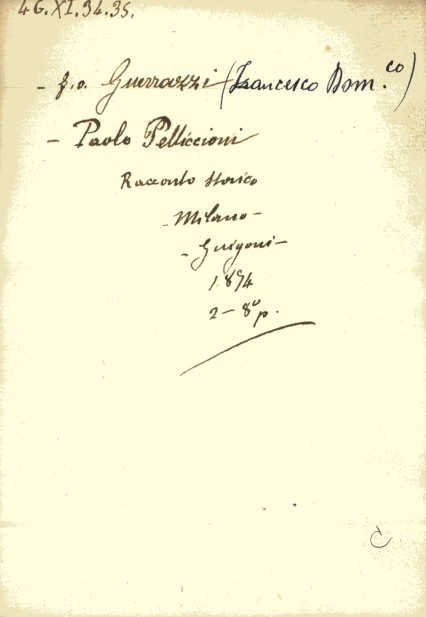 46.XI.34.35.
- f. o. Guerrazzi (Francesco Dom.co)
- Paolo Pelliccioni
Racconto storico
- Milano -
- Guigoni -
1874
2 - 8º p.
C